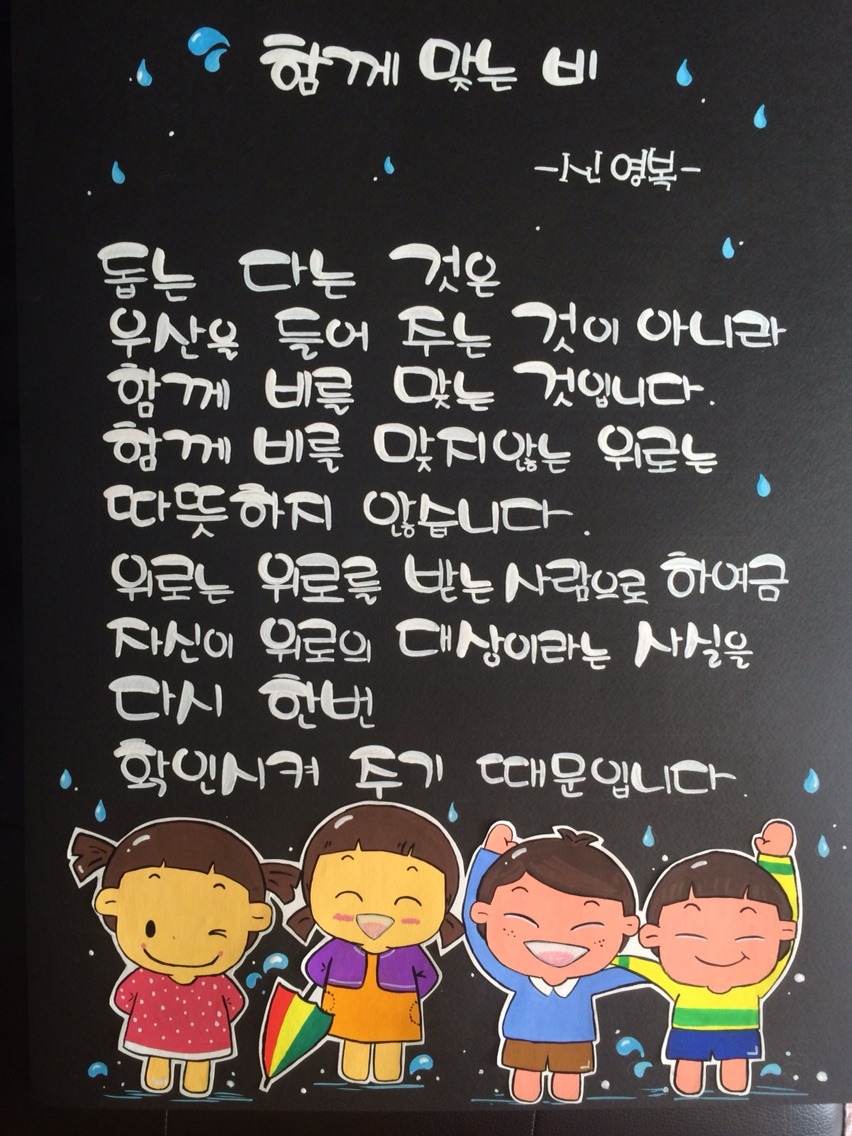 함께 맞는 비
-신영복-
돕는 다는 것은
우산을 들어 주는 것이 아니라
함께 비를 맞는 것입니다.
함께 비를 맞지않는 위로는
따뜻하지 않습니다.
위로는 위로를 받는 사람으로 하여금
자신이 위로의 대상이라는 사실을
다시 한번
확인시켜 주기 때문입니다.